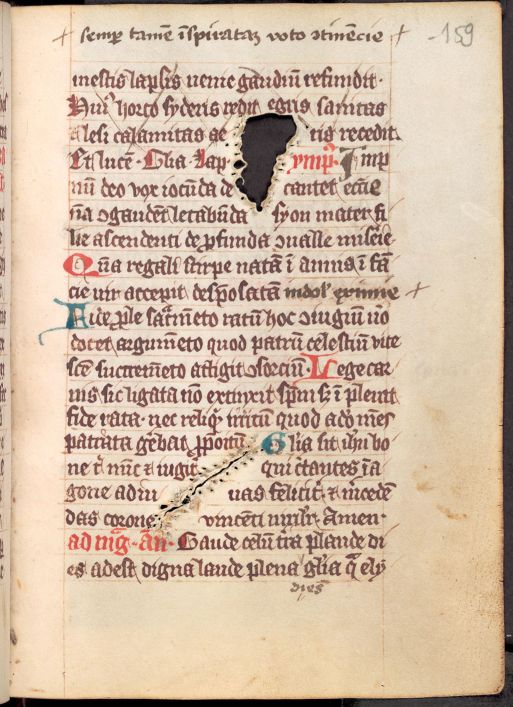 semp tamē īspiratā voto ɔtinēcie
159
mestis lapsis uenie gaudiū refundit.
Huiꝰ horto syderis redit egris sanitas
alesi calamitas ae ris recedit.
Et lucē. Glia Lap ymp. Imp
nū deo vox iocūda de cantet eccē
na ɔgaudēt letabūda syon mater fi
lie ascendenti de ꝓfunda ɔualle miserie
Qua regali stirpe natā ī annis ī fā
cie uir accepit despōsatā indolꝭ eximie
Aide ple sacrmēto ratū hoc ɔiugiū no
docet argumēto quod patrū celestiū vite
scē sucremēto astigit ɔsorciū. Lege car
nis sic ligata nō extinxit spm sꝫ ī plenit
fide rata nec reliqꝫ iritū quod
patrata gebat ꝓpoitū. Glia sit uni bo
ne t nunc ⁊ iugit qui ctantes ia
gone adiu uas felicit ⁊ mercedē
das corone vincenti Amen.
ad mag. an. Gaude celū tra plaude di
es adest digna laude plena glia qua ely
dies